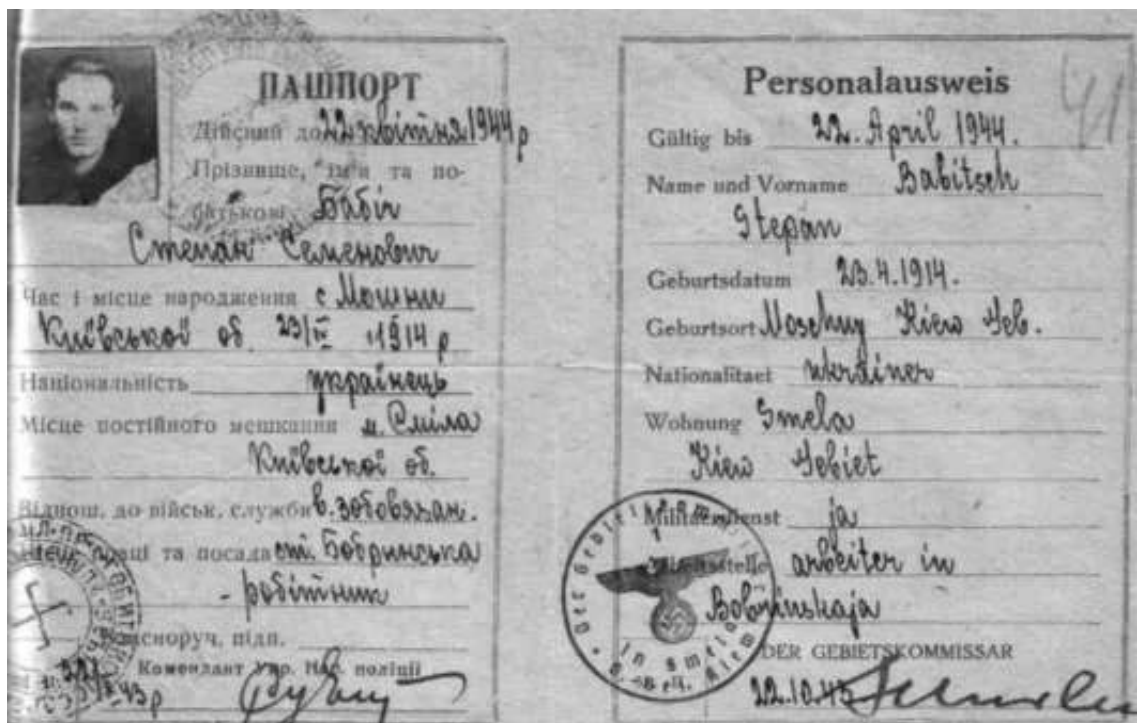 ПАШПОРТ
Дійсний до 22 квітня 1944 р
Прізвище, ім'я та по-
батькові Бабіч
Степан Семенович
Час і місце народження с Мошни
Київської об. 23/IV 1914 р
Національність українець
Місце постійного мешкання м. Сміла
Київської об.
Віднош. до військ. служби в. зобовязан.
Місце праці та посада ст. Бобринська
- робітник
Власноруч. підп.
Комендант Укр. Нар. поліції
Personalausweis
41
Gültig bis 22. April 1944.
Name und Vorname Babitsch
Stepan
Geburtsdatum 23.4.1914.
Geburtsort Moschny Kiew Geb.
Nationalitaet Ukrainer
Wohnung Smela
Kiew Gebiet
Militaerdienst ja
Arbeitsstelle arbeiter in
Bobrinskaja
Der Gebietskommissar
in Smela
DER GEBIETSKOMMISSAR
22.10.43